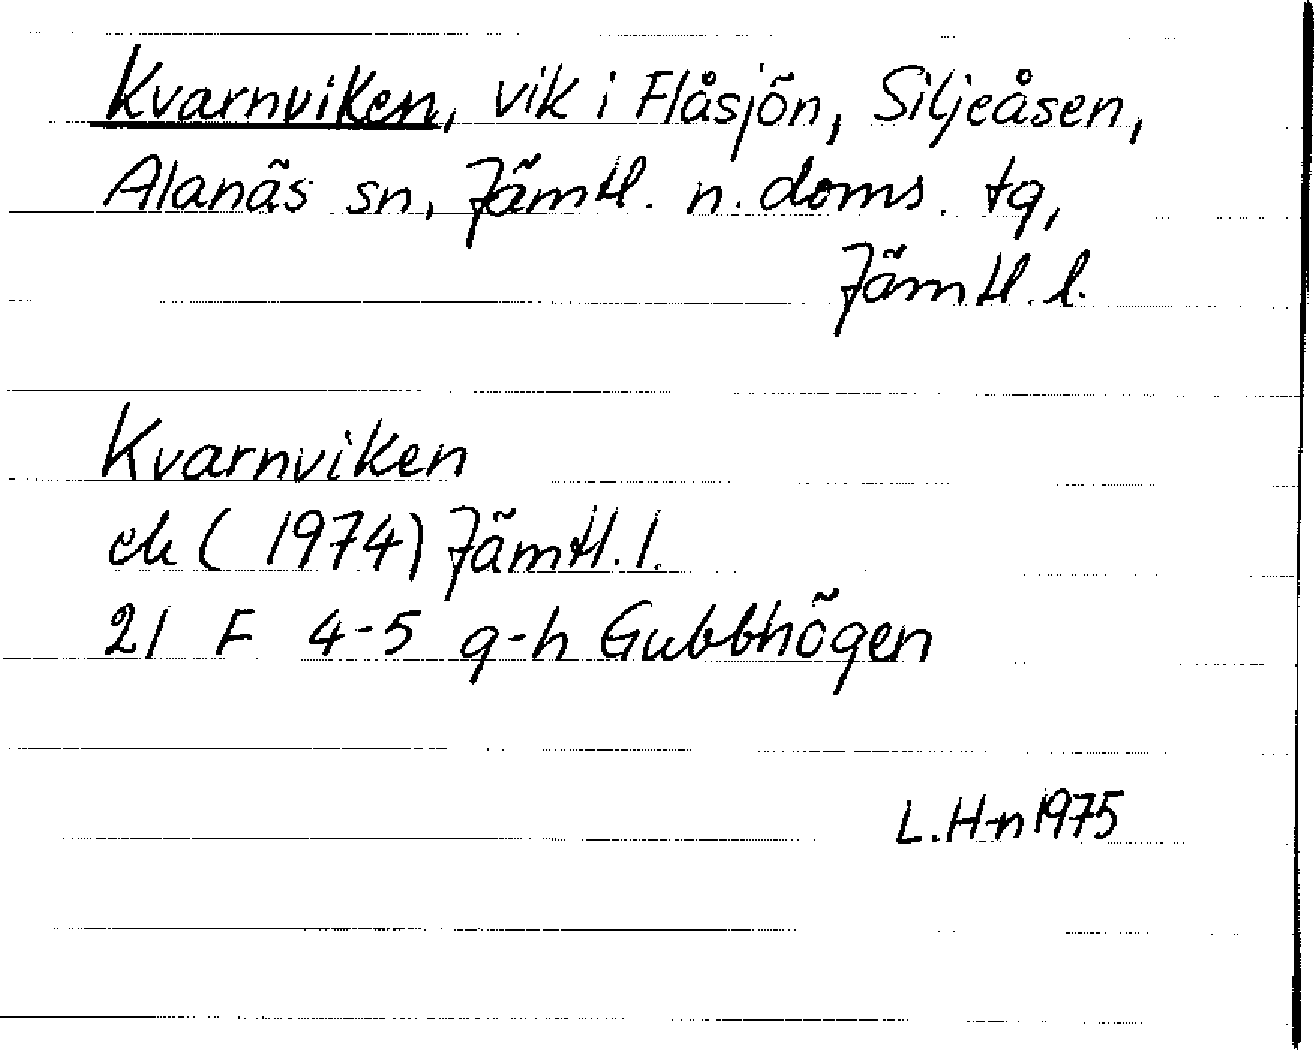 Kvarnviken, vik i Flåsjön, Siljeåsen,
Alanäs sn, Jämtl. n. doms. tg,
Jämtl. l.
Kvarnviken
ek (1974) Jämtl. l.
21 F 4-5 g-h Gubbhögen
L. H-n 1975